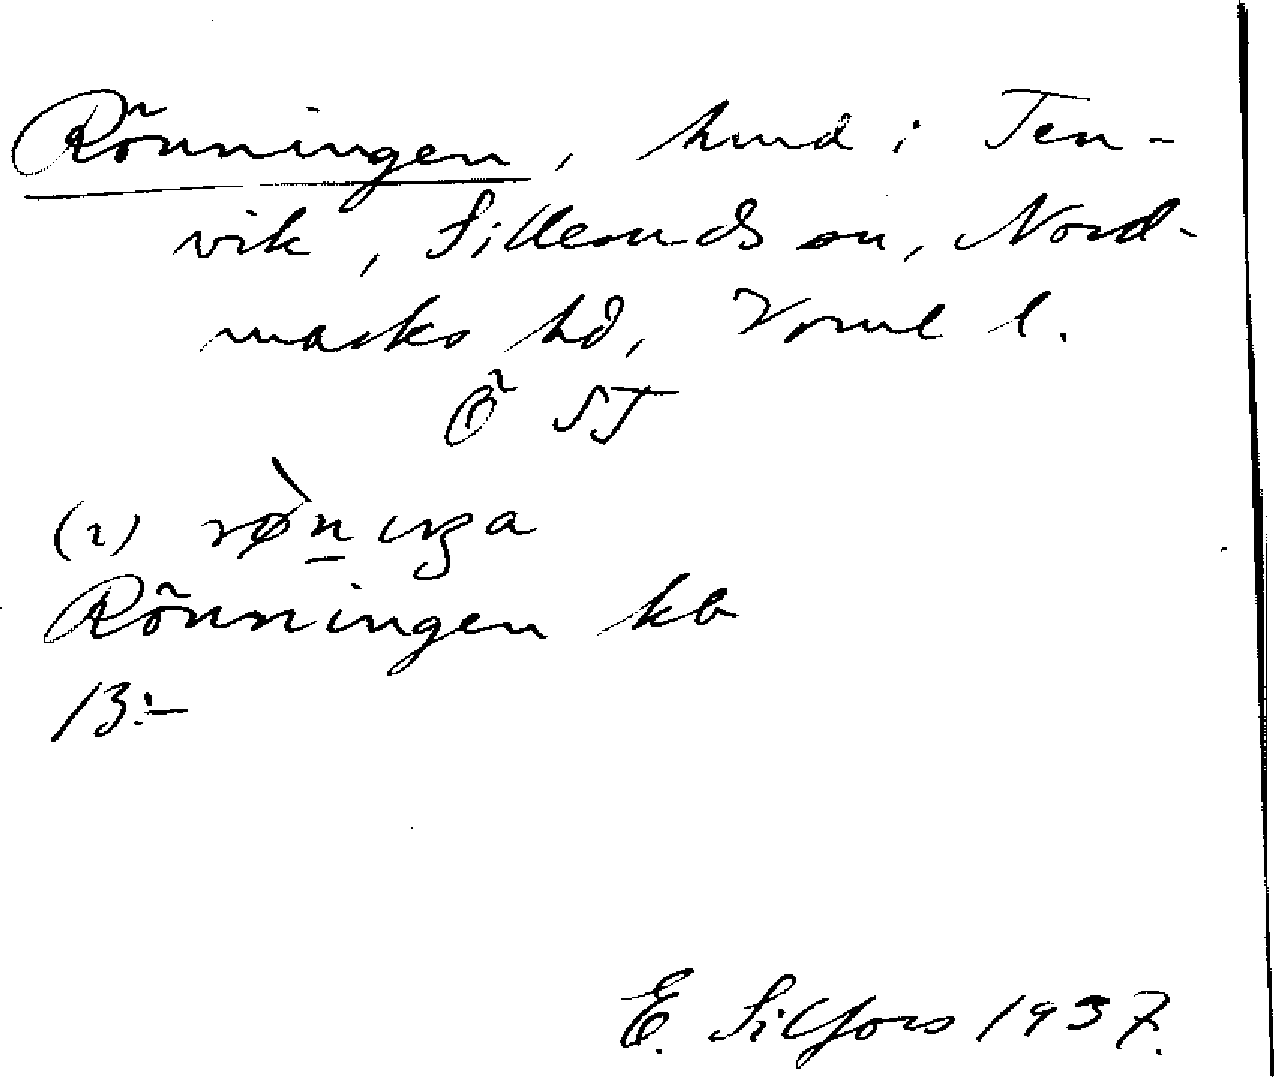 Rönningen, hmd i Ten-
vik, Silleruds sn, Nord-
marks hd, Vrml l.
Ö ST
(i) rø̀n̲iŋa
Rönningen kb
13:-
E. Silfors 1937.